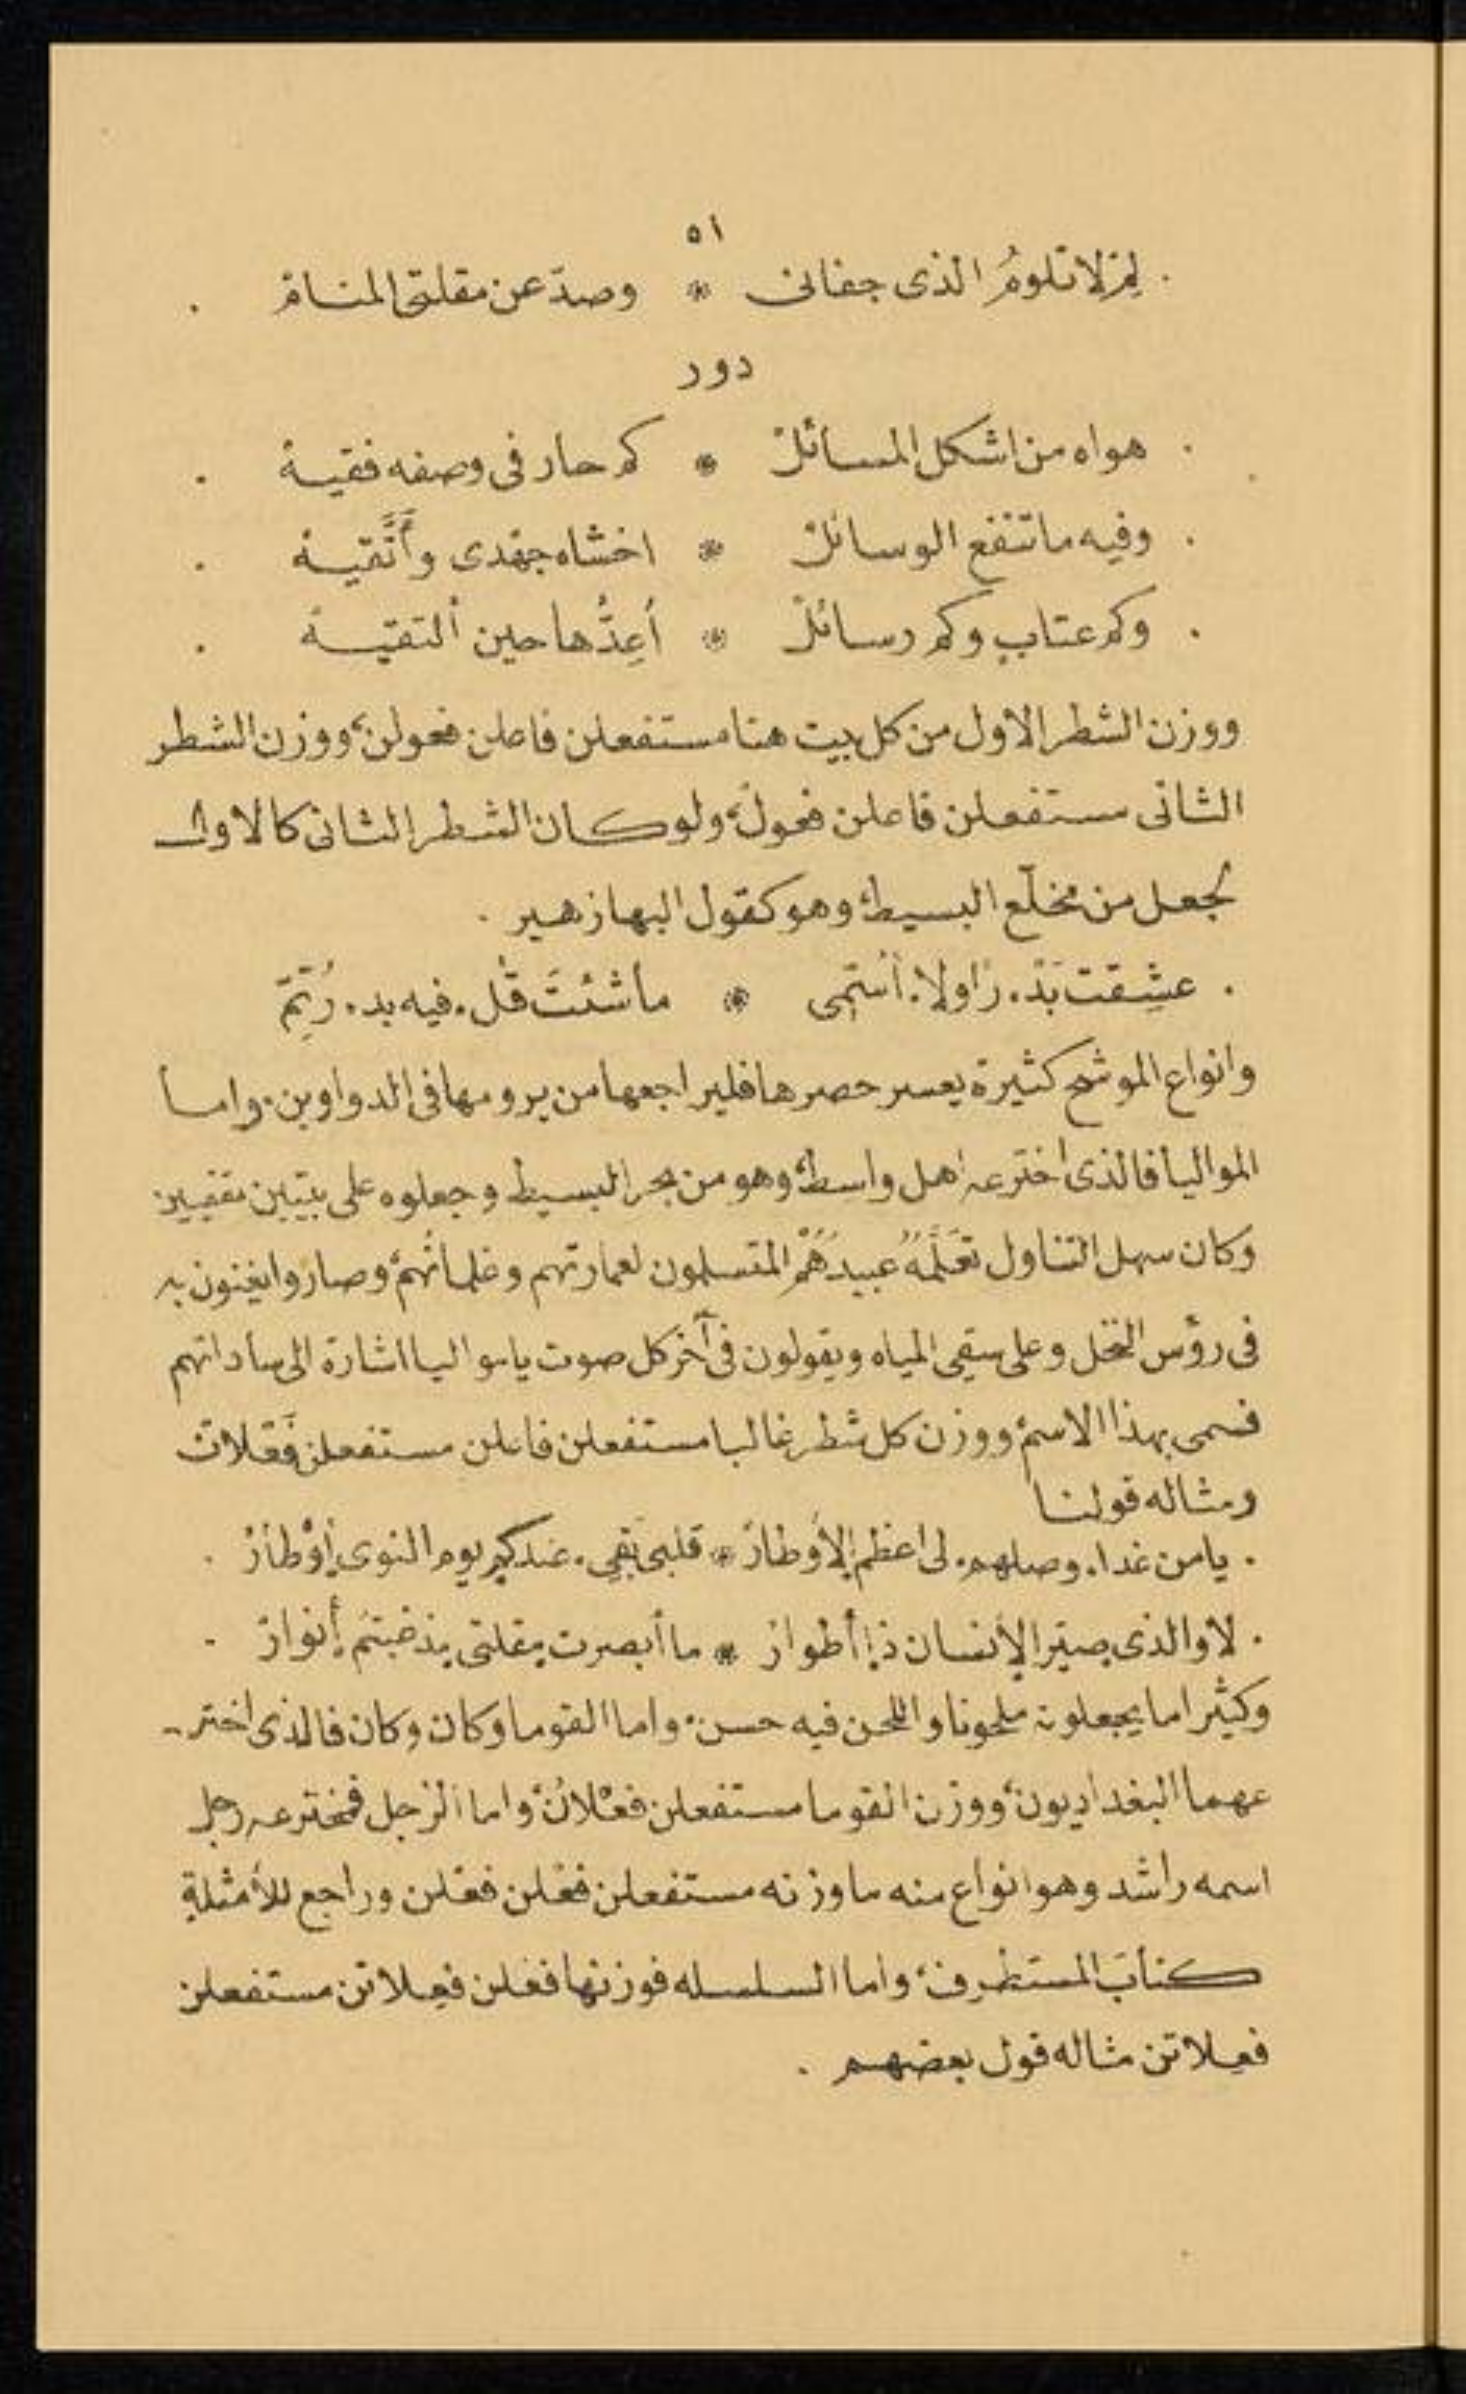 ٥١
. لِمْ لا تلومُ الذى جفانى * وصدّ عن مقلتى المنامْ .
دور
. هواه من اشكل المسائلْ * كم حار فى وصفه فقيهْ .
. وفيه ما تنفع الوسائلْ * اخشاه جهدى وأتَّقيهْ .
. وكم عتاب وكم رسائلْ * أُعِدُّها حين ألتقيهْ .
ووزن الشطر الاول من كل بيت هنا مستفعلن فاعلن فعولن، ووزن الشطر
الثانى مستفعلن فاعلن فعولْ، ولو كان الشطر الثانى كالاول
لجعل من مخلّع البسيط، وهو كقول البها زهير .
. عشِقت بَدْ. رًا ولا. أسَمِّى * ما شئتَ قُل. فيه بد. رُتِمّ
وانواع الموشح كثيرة يعسر حصرها فليراجعها من يرومها فى الدواوين. واما
المواليا فالذى اخترعه اهل واسط، وهو من بحر البسيط وجعلوه على بيتين مقفيين
وكان سهل التناول تعَلَّمَهُ عبيدُهُمْ المتسلمون لعمارتهم وغلمانُهمْ، وصاروا يغنون به
فى رؤس النخل وعلى سقى المياه ويقولون فى آخر كل صوت يا مواليا اشارة الى ساداتهم
فسمى بهذا الاسمْ، ووزن كل شطر غالبا مستفعلن فاعلن مستفعلن فَعْلات
ومثاله قولنا
. يا من غدا. وصلهم. لى اعظم الأوطارْ * قلبى بَقِى. عندكم يوم النوى أوْطارْ .
. لا والذى صيّر الإنسان ذا أطوارْ * ما أبصرت مقلتى مذ غبتمُ أنوارْ .
وكثيرا ما يجعلونه ملحونا واللحن فيه حسن. واما القوما وكان وكان فالذى اختر-
عهما البغداديون، ووزن القوما مستفعلن فعْلانْ، واما الزجل فمخترعه رجل
اسمه راشد وهو انواع منه ما وزنه مستفعلن فعْلن فعْلن وراجع للأمثلةِ
كتابَ المستطرف، واما السلسله فوزنها فعْلن فعِلاتن مستفعلن
فعِلاتن مثاله قول بعضهم .